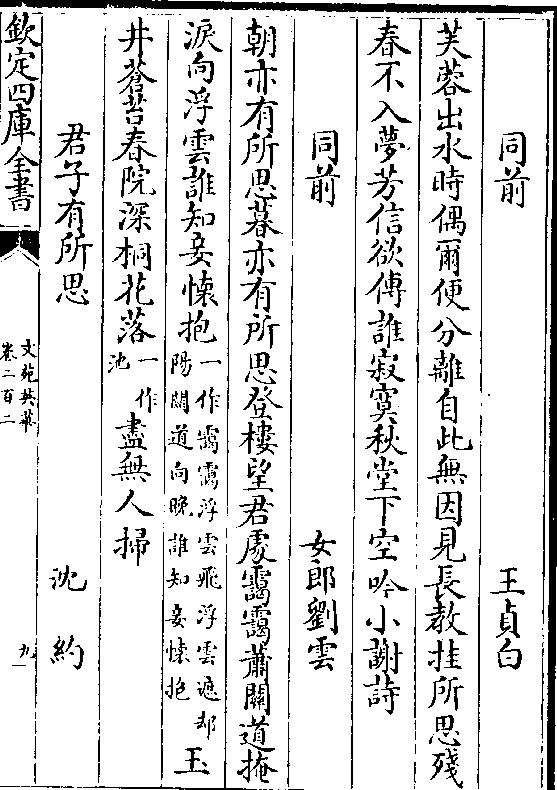 同前　王貞白
芙蓉出水時偶爾便分離自此無因見長教挂所思殘
春不入夢芳信欲傳誰寂寞秋堂下空吟小謝詩
同前　女郎劉雲
朝亦有所思暮亦有所思登樓望君處靄靄蕭關道掩
淚向浮雲誰知妾懷抱一作靄靄浮雲飛浮雲遮却陽關道向晚誰知妾懷抱玉
井蒼苔春院深桐花落一作池盡無人掃
君子有所思　沈約
欽定四庫全書
文苑英華
卷二百二
九